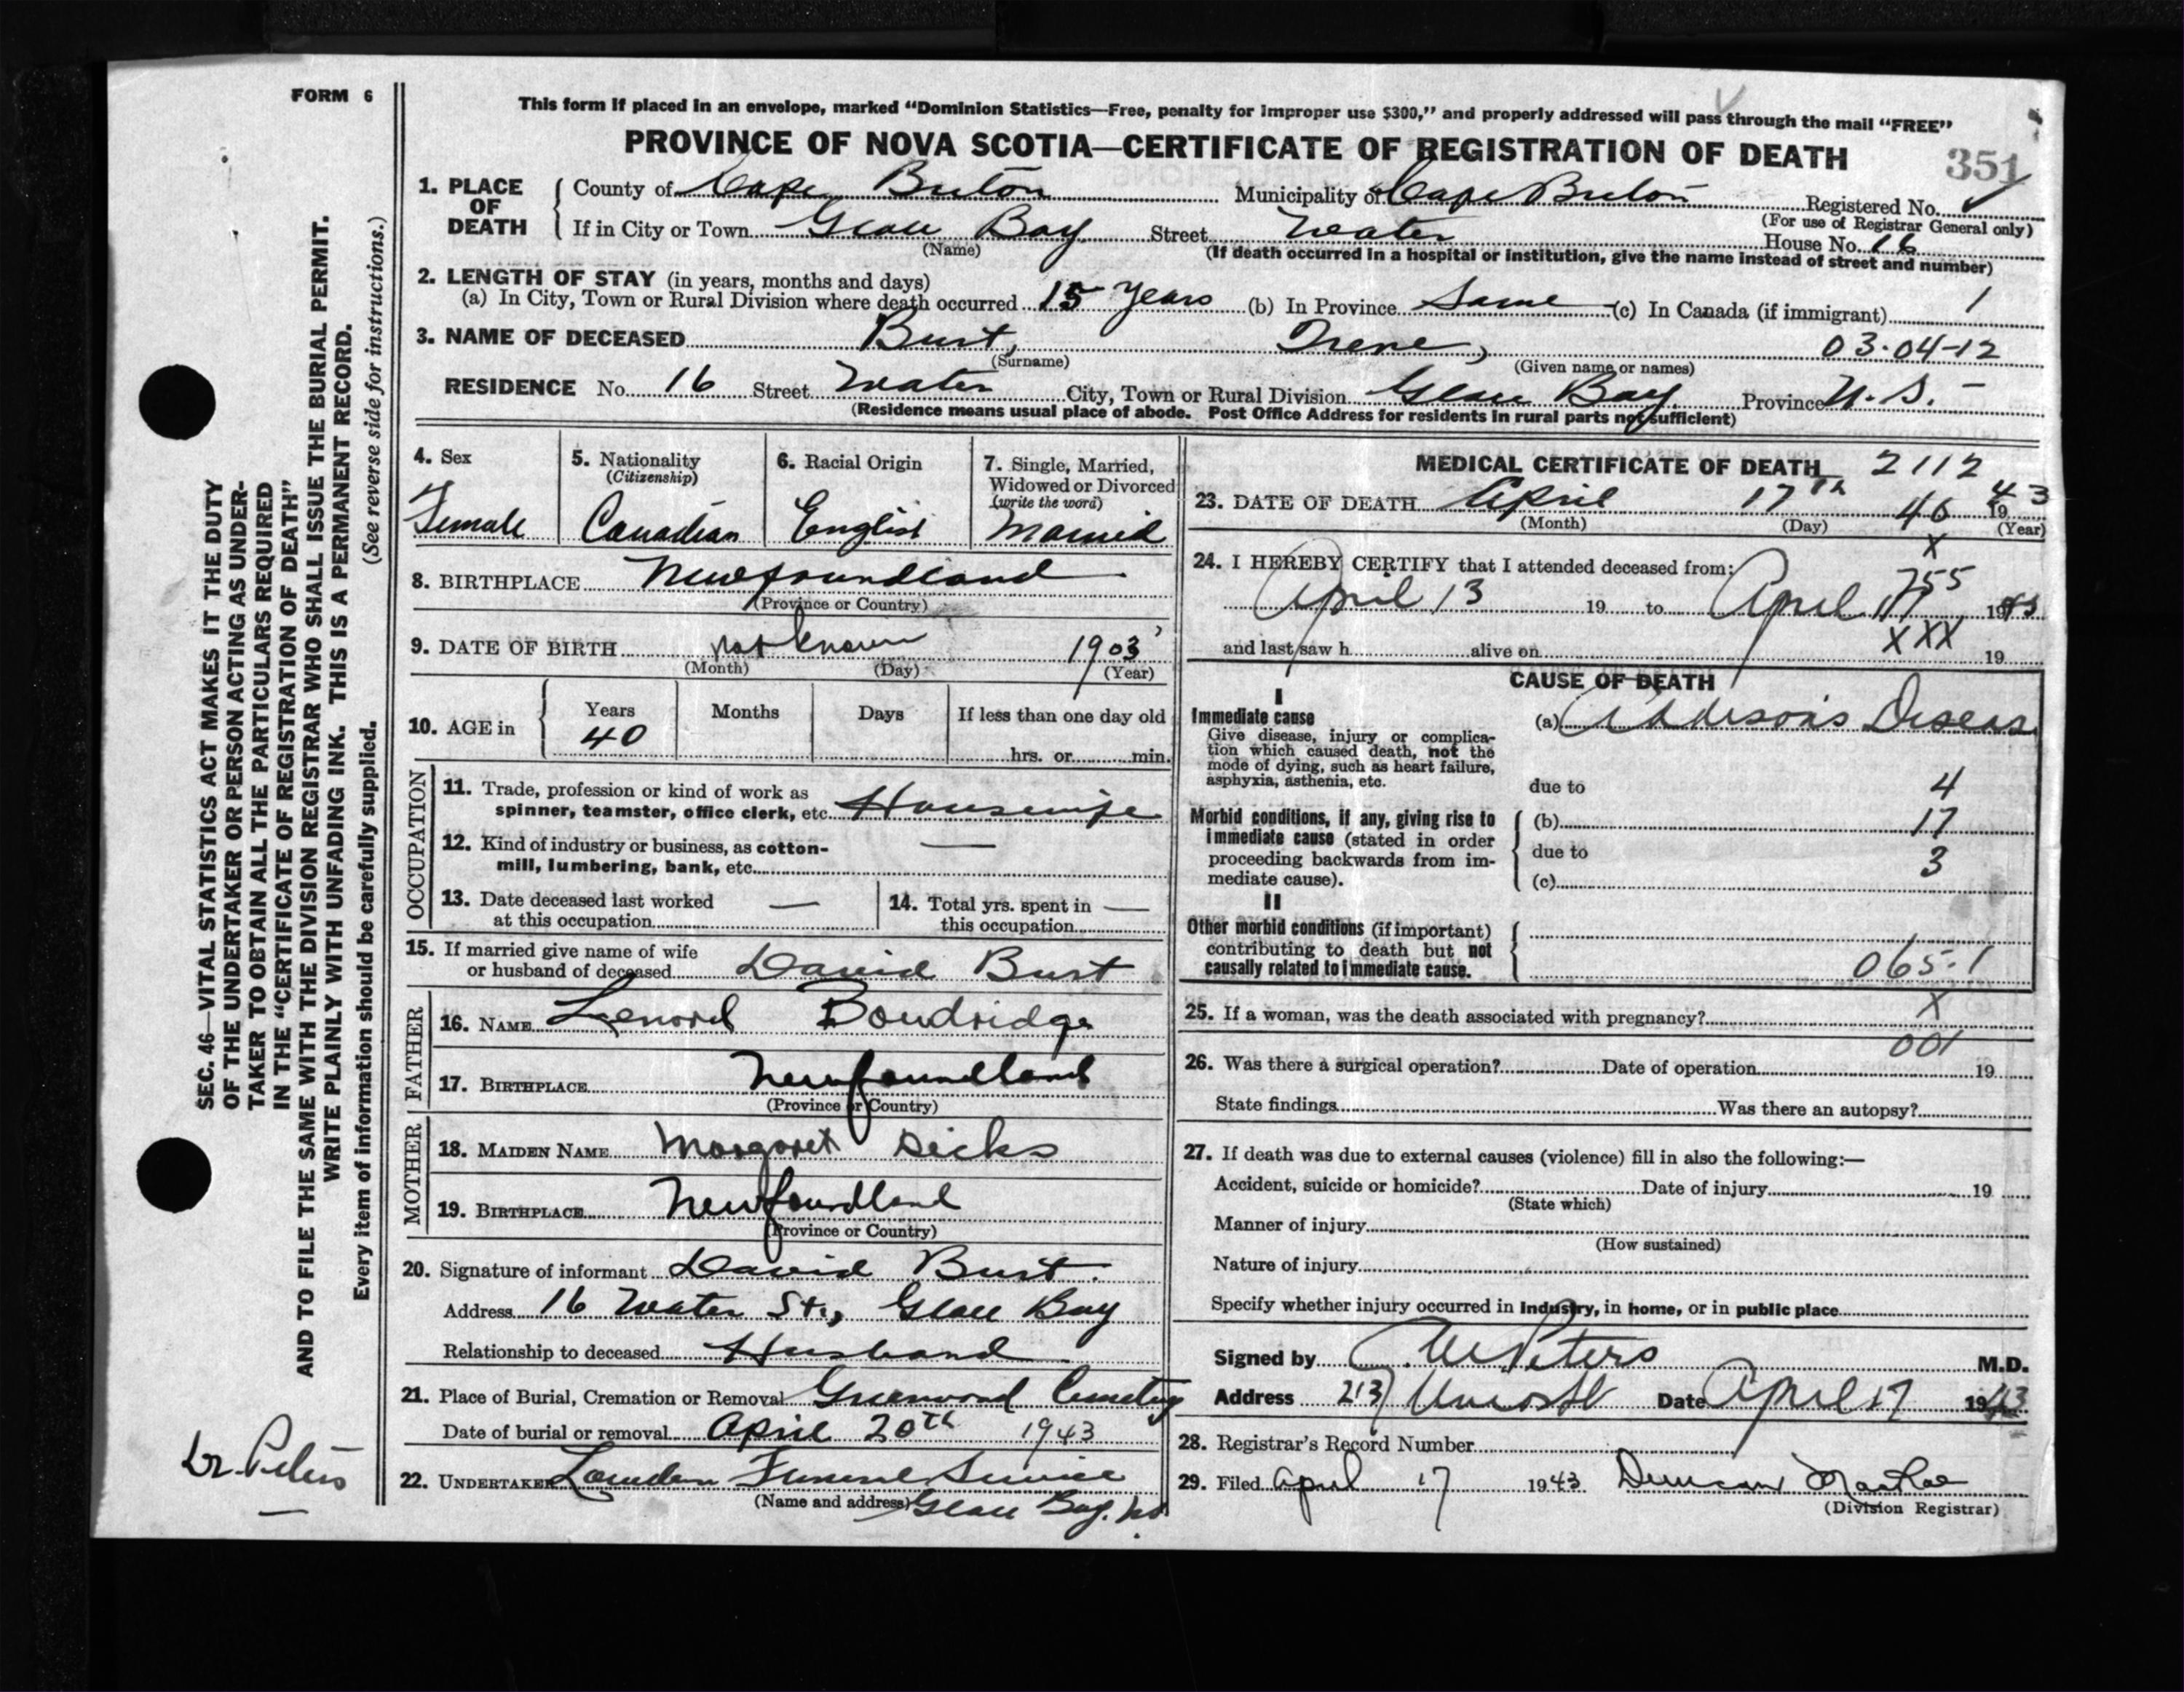 FORM 6
This form if placed in an envelope, marked “Dominion Statistics—Free, penalty for improper use $300,” and properly addressed will pass through the mail “FREE”
PROVINCE OF NOVA SCOTIA—CERTIFICATE OF REGISTRATION OF DEATH
351
1. PLACE OF DEATH County of Cape Breton Municipality of Cape Breton Registered No.
(For use of Registrar General only)
If in City or Town Glace Bay Street Water House No. 16
(Name) (If death occurred in a hospital or institution, give the name instead of street and number)
2. LENGTH OF STAY (in years, months and days)
(a) In City, Town or Rural Division where death occurred 15 years (b) In Province Same (c) In Canada (if immigrant) 1
3. NAME OF DECEASED Burt, Irene, 03-04-12
(Surname) (Given name or names)
RESIDENCE No. 16 Street Water City, Town or Rural Division Glace Bay Province N.S.
(Residence means usual place of abode. Post Office Address for residents in rural parts not sufficient)
4. Sex
Female
5. Nationality
(Citizenship)
Canadian
6. Racial Origin
English
7. Single, Married,
Widowed or Divorced
(write the word)
Married
8. BIRTHPLACE Newfoundland
(Province or Country)
9. DATE OF BIRTH not known 1903
(Month) (Day) (Year)
10. AGE in Years Months Days If less than one day old
40 hrs. or min.
OCCUPATION
11. Trade, profession or kind of work as
spinner, teamster, office clerk, etc. Housewife
12. Kind of industry or business, as cotton-
mill, lumbering, bank, etc. —
13. Date deceased last worked
at this occupation —
14. Total yrs. spent in
this occupation —
15. If married give name of wife
or husband of deceased David Burt
FATHER
16. NAME Lenord Boudridge
17. BIRTHPLACE Newfoundland
(Province or Country)
MOTHER
18. MAIDEN NAME Margaret Dicks
19. BIRTHPLACE Newfoundland
(Province or Country)
20. Signature of informant David Burt.
Address 16 Water St., Glace Bay
Relationship to deceased Husband
21. Place of Burial, Cremation or Removal Greenwood Cemetery
Date of burial or removal April 20th 1943
22. UNDERTAKER Funeral Service
(Name and address) Glace Bay. N.S.
MEDICAL CERTIFICATE OF DEATH 2112
23. DATE OF DEATH April 17th 40 1943
(Month) (Day) (Year)
X
24. I HEREBY CERTIFY that I attended deceased from:
755
April 13 19 to April 17 1943
XXX
and last saw h alive on 19
CAUSE OF DEATH
I
Immediate cause
Give disease, injury or complica-
tion which caused death, not the
mode of dying, such as heart failure,
asphyxia, asthenia, etc.
(a) Addison's Disease
due to 4
Morbid conditions, if any, giving rise to
immediate cause (stated in order
proceeding backwards from im-
mediate cause).
(b) 17
due to 3
(c)
II
Other morbid conditions (if important)
contributing to death but not
causally related to immediate cause.
065.1
25. If a woman, was the death associated with pregnancy? X
001
26. Was there a surgical operation? Date of operation 19
State findings Was there an autopsy?
27. If death was due to external causes (violence) fill in also the following:—
Accident, suicide or homicide? Date of injury 19
(State which)
Manner of injury
(How sustained)
Nature of injury
Specify whether injury occurred in Industry, in home, or in public place
Signed by Peters M.D.
Address 213 Date April 17 1943
28. Registrar's Record Number
29. Filed April 17 1943 Duncan
(Division Registrar)
SEC. 46—VITAL STATISTICS ACT MAKES IT THE DUTY
OF THE UNDERTAKER OR PERSON ACTING AS UNDER-
TAKER TO OBTAIN ALL THE PARTICULARS REQUIRED
IN THE “CERTIFICATE OF REGISTRATION OF DEATH”
AND TO FILE THE SAME WITH THE DIVISION REGISTRAR WHO SHALL ISSUE THE BURIAL PERMIT.
WRITE PLAINLY WITH UNFADING INK. THIS IS A PERMANENT RECORD.
Every item of information should be carefully supplied. (See reverse side for instructions.)
Dr. Peters